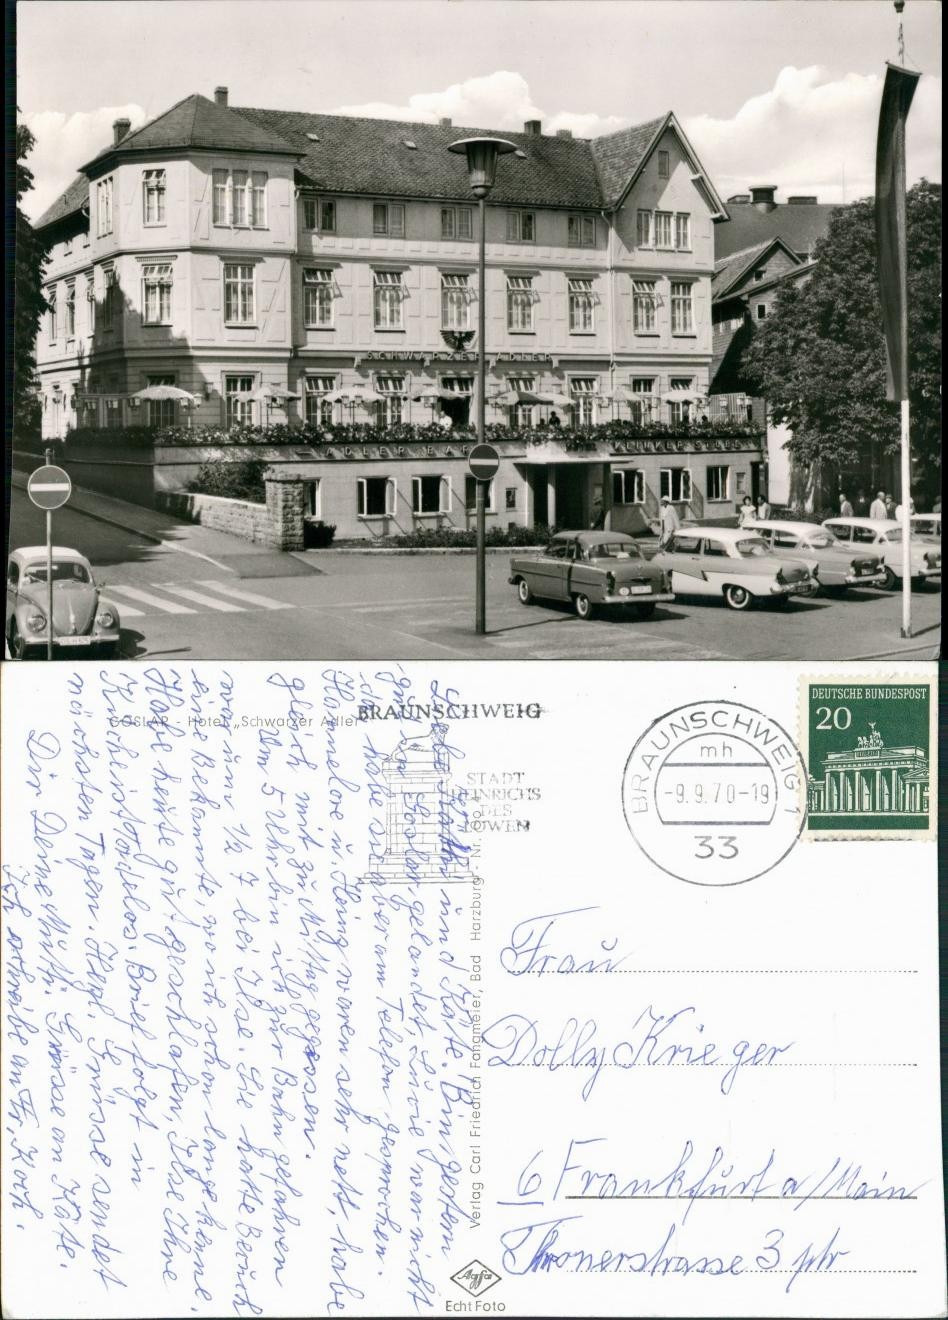 SCHWARZER ADLER
ADLER BAR
KLINKER STUBE
GOSLAR - Hotel „Schwarzer Adler"
BRAUNSCHWEIG
STADT
HEINRICHS
DES
LÖWEN
BRAUNSCHWEIG 1
mh
-9.9.70-19
33
DEUTSCHE BUNDESPOST
20
Liebe und Käte. Bin gestern
gut in Goslar gelandet, Luvie war nicht
da, habe sie aber am Telefon gesprochen.
Hannelore u. Heinz waren sehr nett, habe
gleich mit zu Mittag gegessen.
Um 5 Uhr bin ich zur Bahn gefahren
war um 1/2 7 bei Ilse. Sie hatte Besuch
eine Bekannte, wo ich schon lange kenne.
Habe heute gut geschlafen, Ilse Ihre
Küche ist tadellos. Brief folgt in
nächsten Tagen. Herzl. Grüsse sendet
Dir Deine Mutti. Grüsse an Käte.
Ich schreibe an Fr. Koch.
Verlag Carl Friedrich Fangmeier, Bad Harzburg - Nr.
Frau
Dolly Krieger
6 Frankfurt a/Main
Thronerstrasse 3 ptr
Agfa
Echt Foto